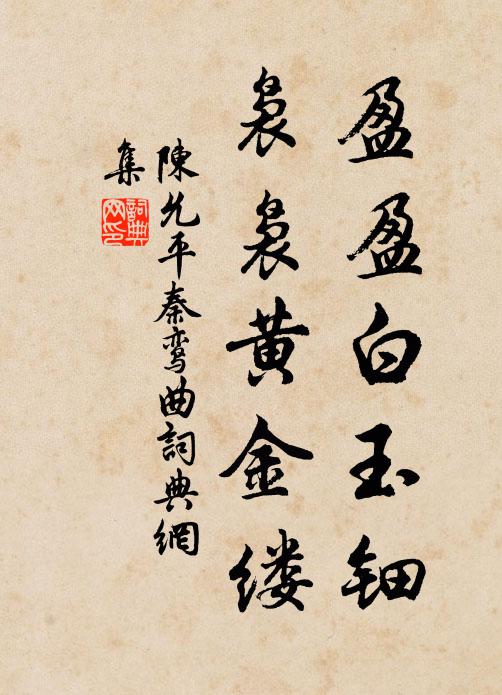 盈盈白玉钿
袅袅黄金缕
陳允平秦鸾曲詞典網
集
詞典网印